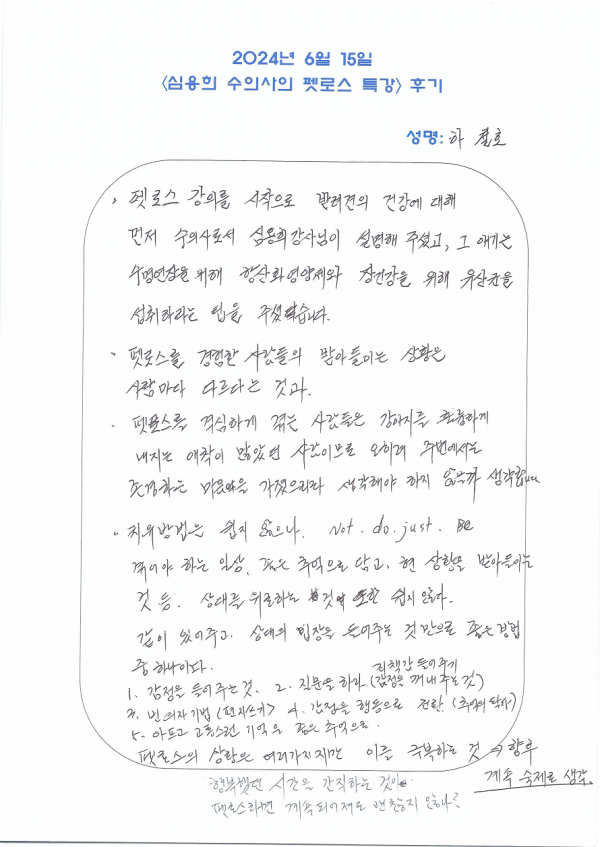 2024년 6월 15일
<심용희 수의사의 펫로스 특강> 후기
성명: 하 철호
· 펫로스 강의를 시작으로 반려견의 건강에 대해
먼저 수의사로서 심용희강사님이 설명해 주셨고, 그 얘기는
수명연장을 위해 항산화영양제와 장건강을 위해 유산균을
섭취하라는 팁을 주셨습니다.
· 펫로스를 경험한 사람들의 받아들이는 상황은
사람마다 다르다는 것과.
· 펫로스를 극심하게 겪는 사람들은 강아지를
내지는 애착이 많았던 사람이므로 오히려 주변에서는
존경하는 마음을 가졌으리라 생각해야 하지 않을까 생각
· 치유방법은 쉽지 않으나. Not. do. just. Be
겪어야 하는 일상, 좋은 추억으로 담고, 현 상황을 받아들이는
것 등. 상대를 위로하는 것이 또한 쉽지 않다.
같이 있어주고. 상대의 입장을 들어주는 것 만으로 좋은 방법
중 하나이다.
1. 감정을 들어주는 것. 2. 질문을 하라 (감정을 꺼내 주는 것)
죄책감 들어주기
3. 빈의자 기법 (편지쓰기) 4. 감정을 행동으로 전환. (추억의 )
5. 아프고 고통스런 기억을 좋은 추억으로.
펫로스의 상황은 여러가지지만 이를 극복하는 것 → 향후
계속 숙제로 생각.
행복했던 시간을 간직하는 것이
펫로스라면 계속되어져도 괜찮지 않나?